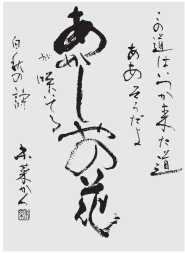 この道はいつか来た道
ああそうだよ
あかしやの花
が咲いてる
白秋の詩